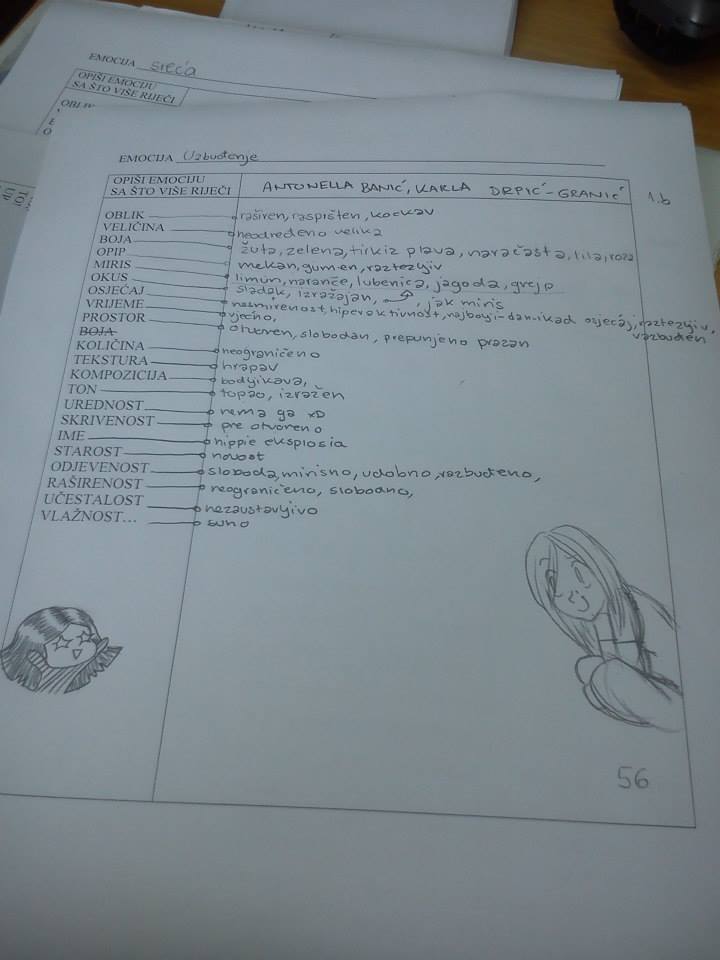 EMOCIJA sreća
OPIŠI EMOCIJU
SA ŠTO VIŠE RIJEČI
EMOCIJA Uzbuđenje
OPIŠI EMOCIJU
SA ŠTO VIŠE RIJEČI
ANTONELLA BANIĆ, KARLA DRPIĆ-GRANIĆ 1.b
OBLIK raširen, raspišten, kockav
VELIČINA neodređeno velika
BOJA žuta, zelena, tirkiz plava, naračasta, lila, roza
OPIP mekan, gumen, raztezljiv
MIRIS limun, naranče, lubenica, jagoda, grejp
OKUS sladak, izražajan, jak miris
OSJEĆAJ nesmirenost, hiperaktivnost, najbolji-dan-ikad osjećaj, raztezljiv,
vazbuđen
VRIJEME vječno,
PROSTOR otvoren, slobodan, prepunjeno prazan
BOJA
KOLIČINA neograničeno
TEKSTURA hrapav
KOMPOZICIJA bodljikava,
TON topao, izražen
UREDNOST nema ga xD
SKRIVENOST pre otvoreno
IME hippie eksplosia
STAROST novost
ODJEVENOST sloboda, mirisno, udobno, razbuđeno,
RAŠIRENOST neograničeno, slobodno,
UČESTALOST nezaustavljivo
VLAŽNOST... suho
56